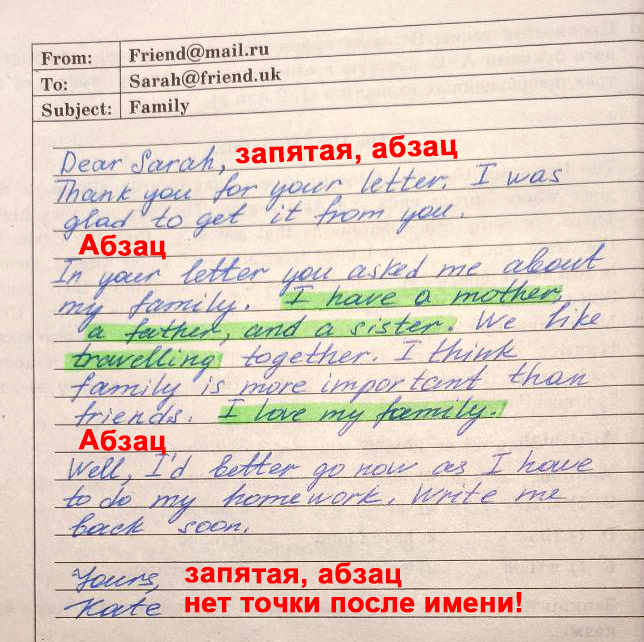 From: Friend@mail.ru
To: Sarah@friend.uk
Subject: Family
Dear Sarah, запятая, абзац
Thank you for your letter. I was
glad to get it from you.
Абзац
In your letter you asked me about
my family. I have a mother,
a father, and a sister. We like
travelling together. I think
family is more important than
friends. I love my family.
Абзац
Well, I'd better go now as I have
to do my homework. Write me
back soon.
Yours, запятая, абзац
Kate нет точки после имени!